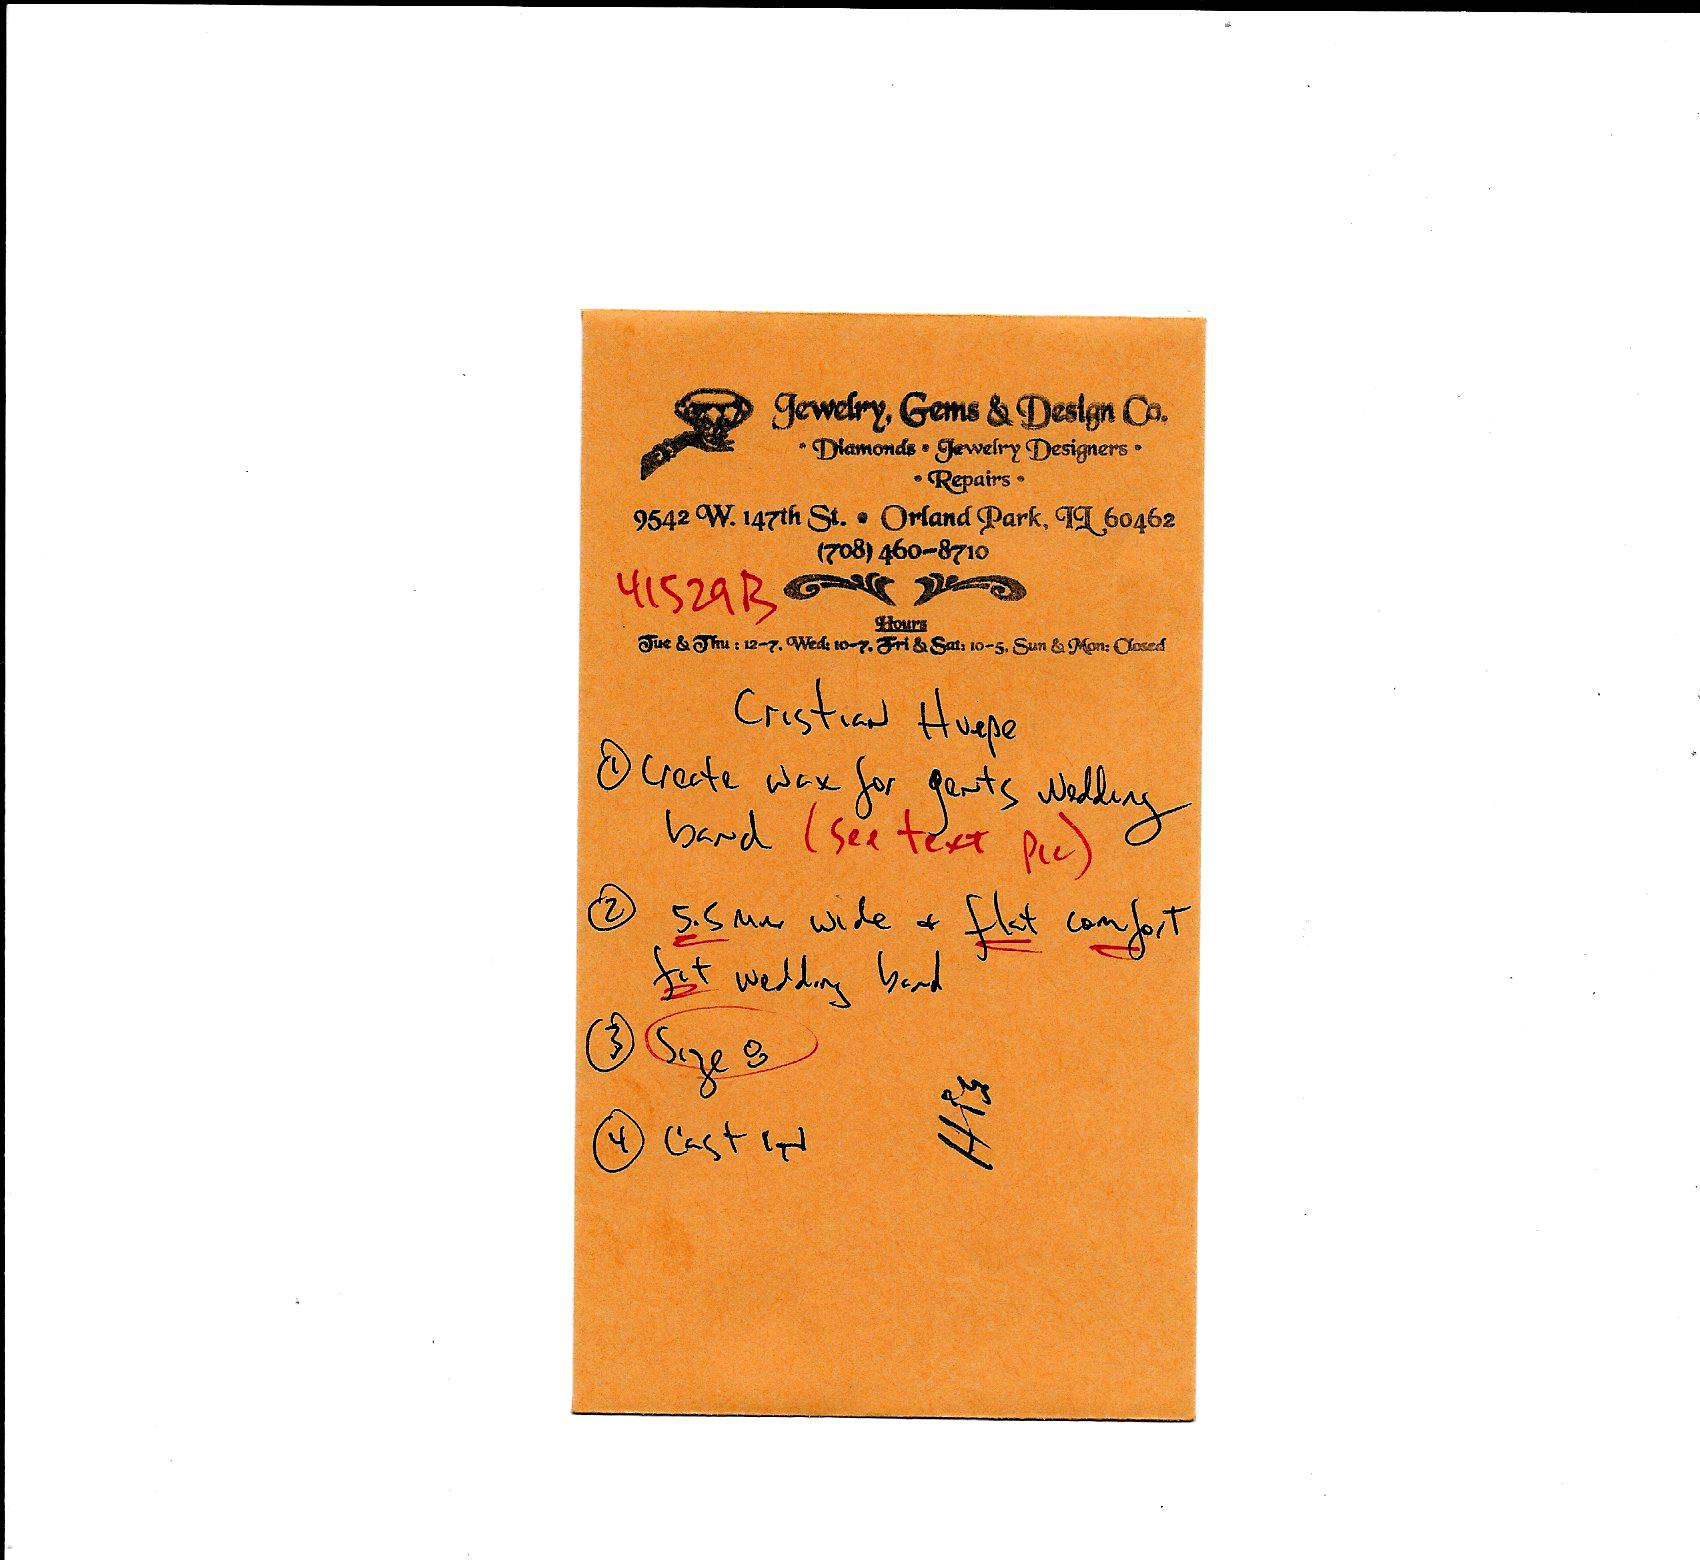 Jewelry, Gems & Design Co.
• Diamonds • Jewelry Designers •
• Repairs •
9542 W. 147th St. • Orland Park, IL 60462
(708) 460-8710
41529B
Hours
Tue & Thu : 12-7, Wed: 10-7, Fri & Sat: 10-5, Sun & Mon: Closed
Cristian Huepe
① Create wax for gents wedding
band (see text pic)
② 5.5mm wide + flat comfort
fit wedding band
③ Size 8
④ Cast
His